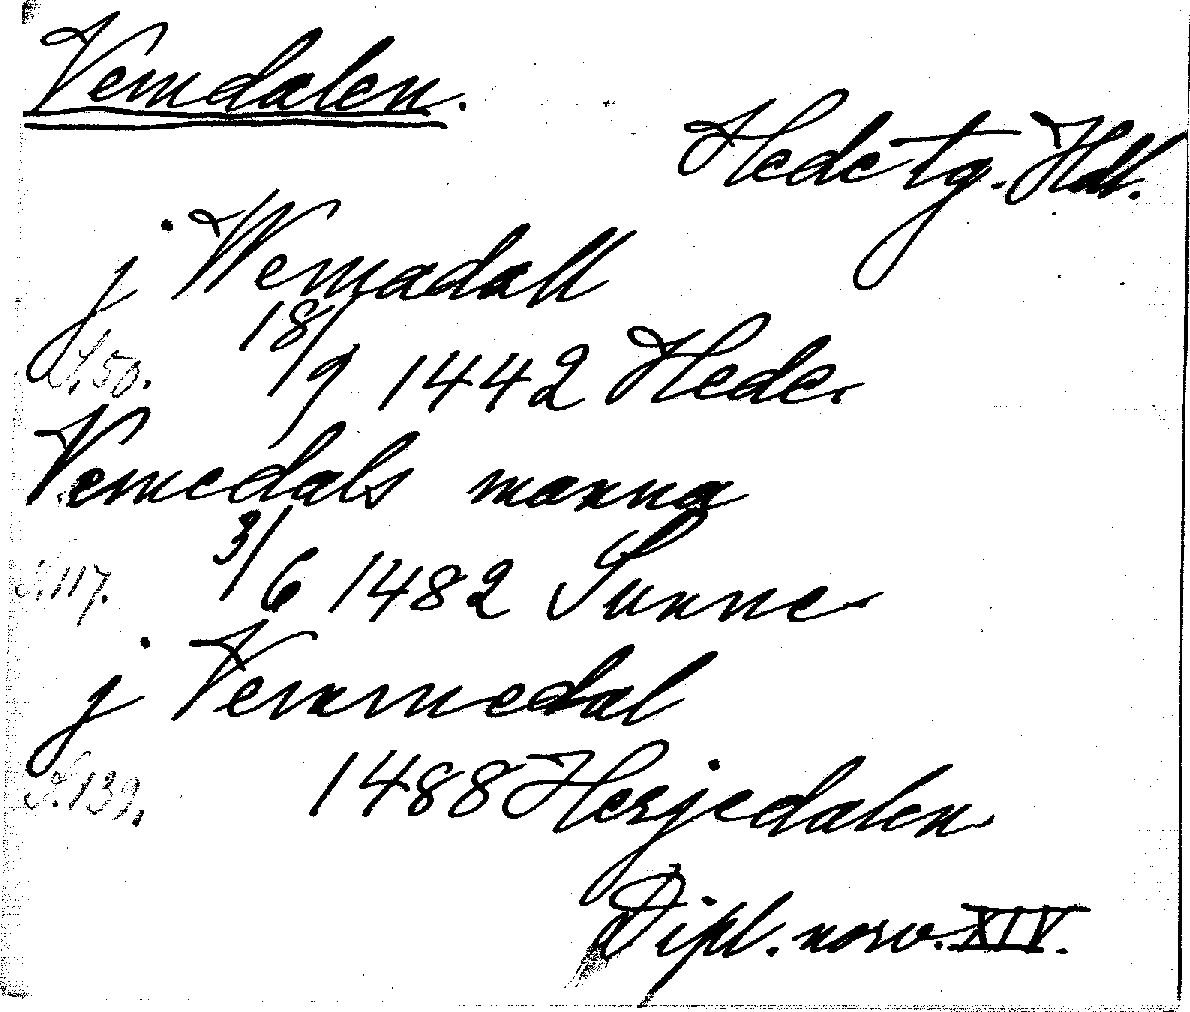 Vemdalen.
Hede tg. Hdl.
j Wemadall
S. 50. 18/9 1442 Hede.
Vemedals manna
S. 117. 3/6 1482 Sunne
j Vemmedal
S. 139. 1488 Herjedalen
Dipl. norv. XIV.